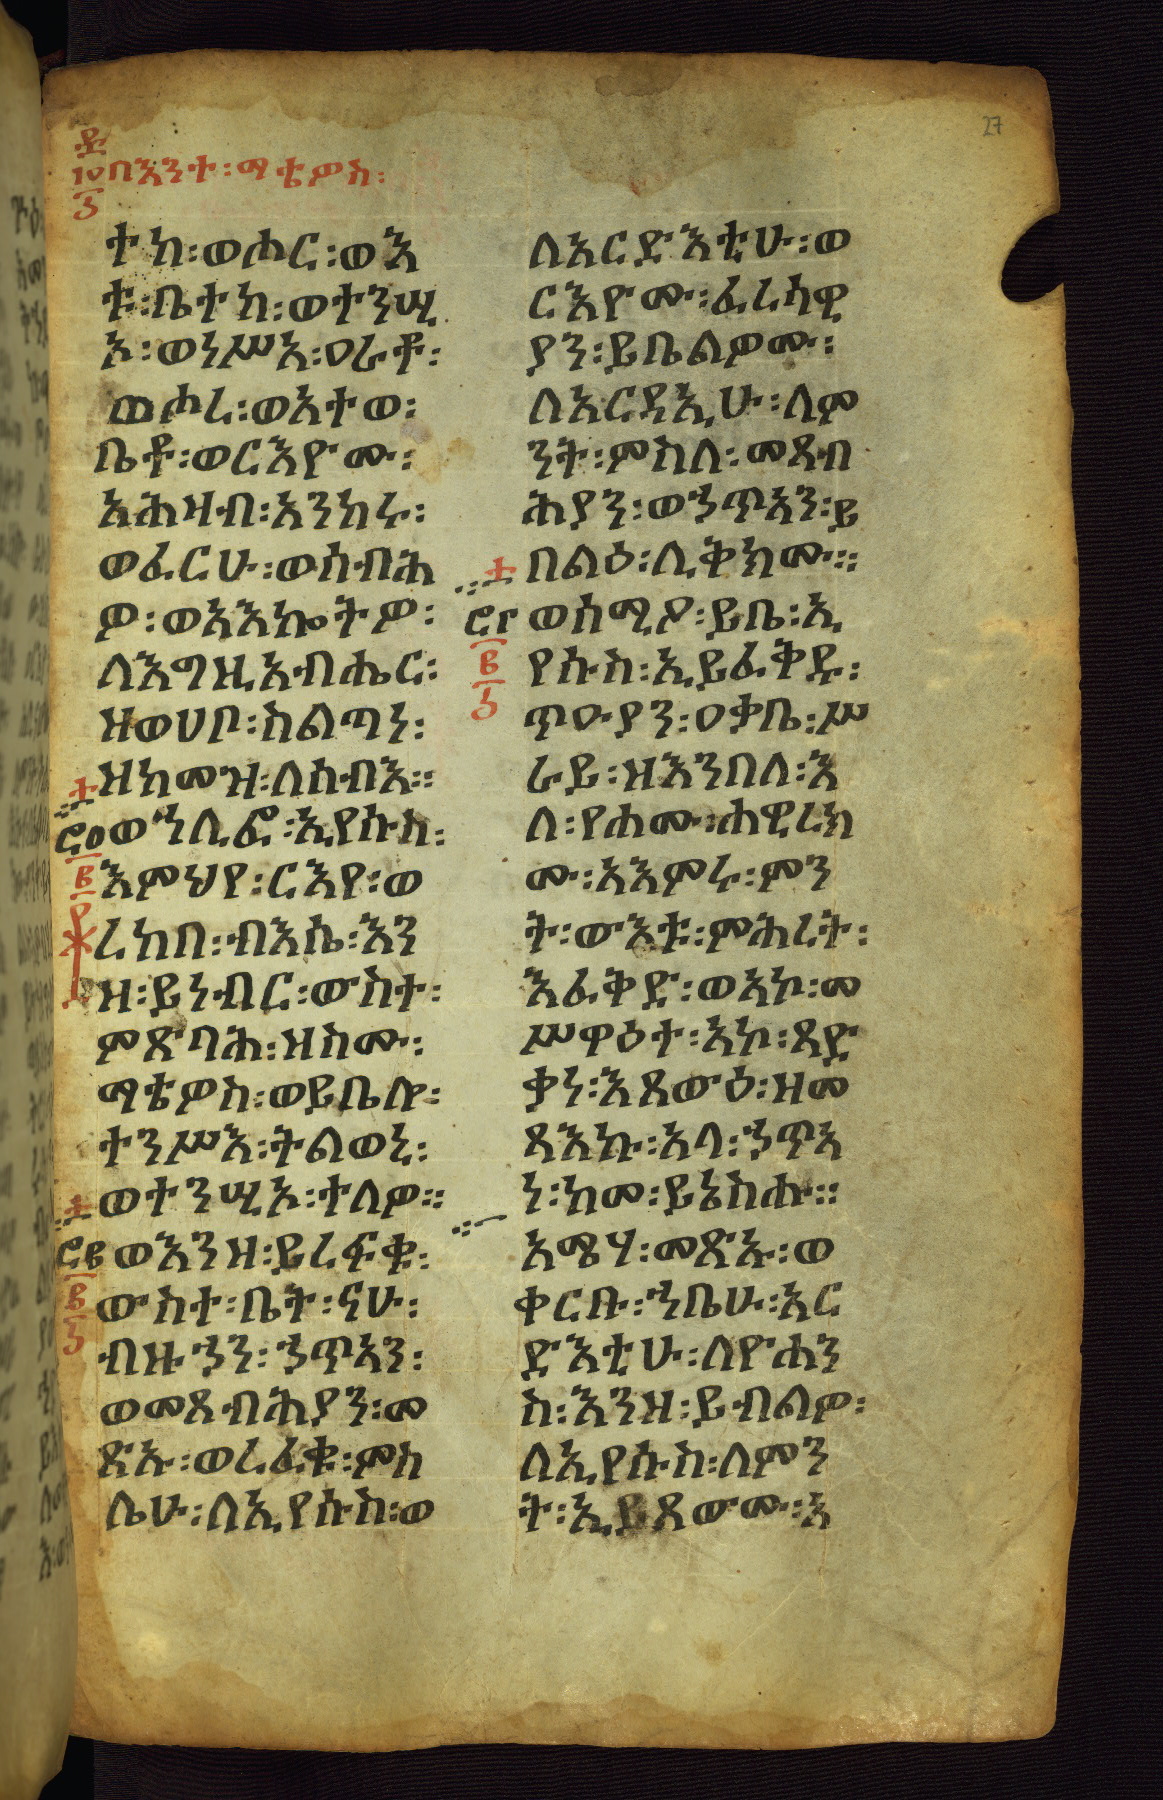 27
በእንተ፡ማቴዎስ፡
ተከ፡ወሖር፡ውእ
ቱ፡ቤተከ፡ወተንሢ
አ፡ወነሥአ፡ዐራቶ፡
ወሖረ፡ወአተወ፡
ቤቶ፡ወርእዮሙ፡
አሕዛብ፡አንከሩ፡
ወፈርሁ፡ወሰብሕ
ዎ፡ወአእኰትዎ፡
ለእግዚአብሔር፡
ዘወሀቦ፡ስልጣነ፡
ዘከመዝ፡ለሰብእ።
ወኀሊፎ፡ኢየሱስ፡
እምህየ፡ርእየ፡ወ
ረከበ፡ብእሴ፡እን
ዘ፡ይነብር፡ውስተ፡
ምጽባሕ፡ዘስሙ፡
ማቴዎስ፡ወይቤሎ፡
ተንሥእ፡ትልወኒ፡
ወተንሢኦ፡ተለዎ።
ወእንዘ፡ይረፍቁ፡
ውስተ፡ቤት፡ናሁ፡
ብዙኃን፡ኃጥአን፡
ወመጸብሕያን፡መ
ጽኡ፡ወረፈቁ፡ምስ
ሌሁ፡ለኢየሱስ፡ወ
ለአርድእቲሁ፡ወ
ርእዮሙ፡ፈሪሳዊ
ያን፡ይቤልዎሙ፡
ለአርዳኢሁ፡ለም
ንት፡ምስለ፡መጸብ
ሕያን፡ወኃጥአን፡ይ
በልዕ፡ሊቅክሙ።
ወሰሚዖ፡ይቤ፡ኢ
የሱስ፡ኢይፈቅዱ፡
ጥዑያን፡ዐቃቤ፡ሥ
ራይ፡ዘእንበለ፡እ
ለ፡የሐሙ፡ሐዊረክ
ሙ፡አእምሩ፡ምን
ት፡ውእቱ፡ምሕረት፡
እፈቅድ፡ወአኮ፡መ
ሥዋዕተ፡አኮ፡ጻድ
ቃነ፡እጸውዕ፡ዘመ
ጻእኩ፡አላ፡ኃጥአ
ነ፡ከመ፡ይኔስሑ።
አሜሃ፡መጽኡ፡ወ
ቀርቡ፡ኀቤሁ፡አር
ድእቲሁ፡ለዮሐን
ስ፡እንዘ፡ይብልዎ፡
ለኢየሱስ፡ለምን
ት፡ኢይጸውሙ፡አ